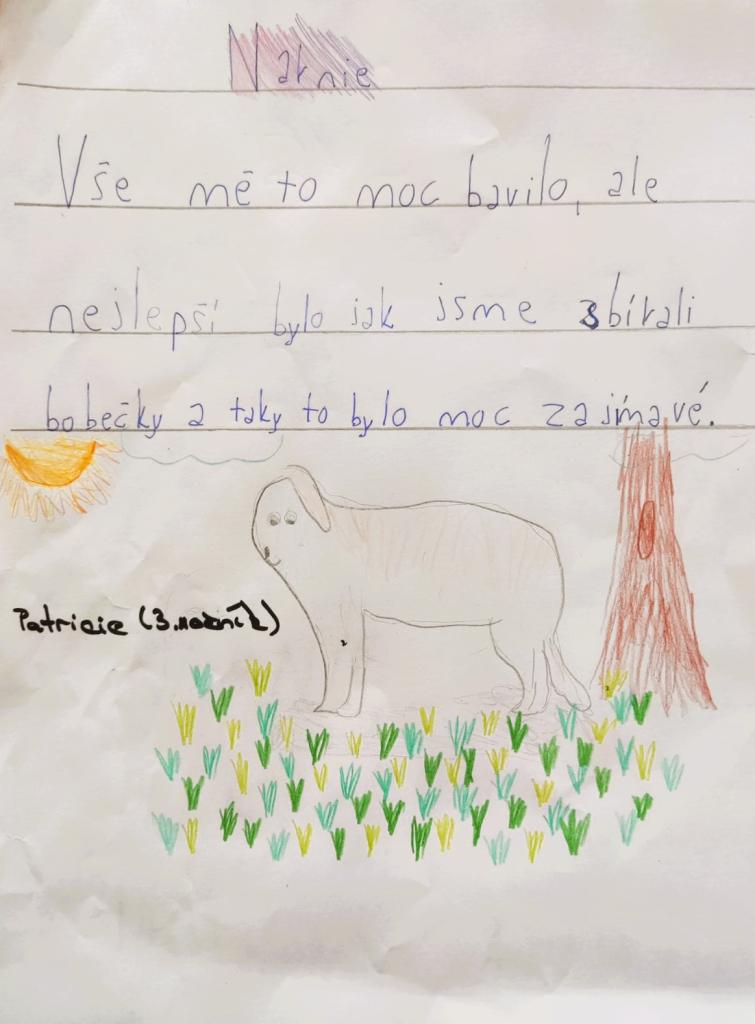 Narnie
Vše mě to moc bavilo, ale
nejlepší bylo jak jsme sbírali
bobečky a taky to bylo moc zajímavé.
Patricie (3. ročník)